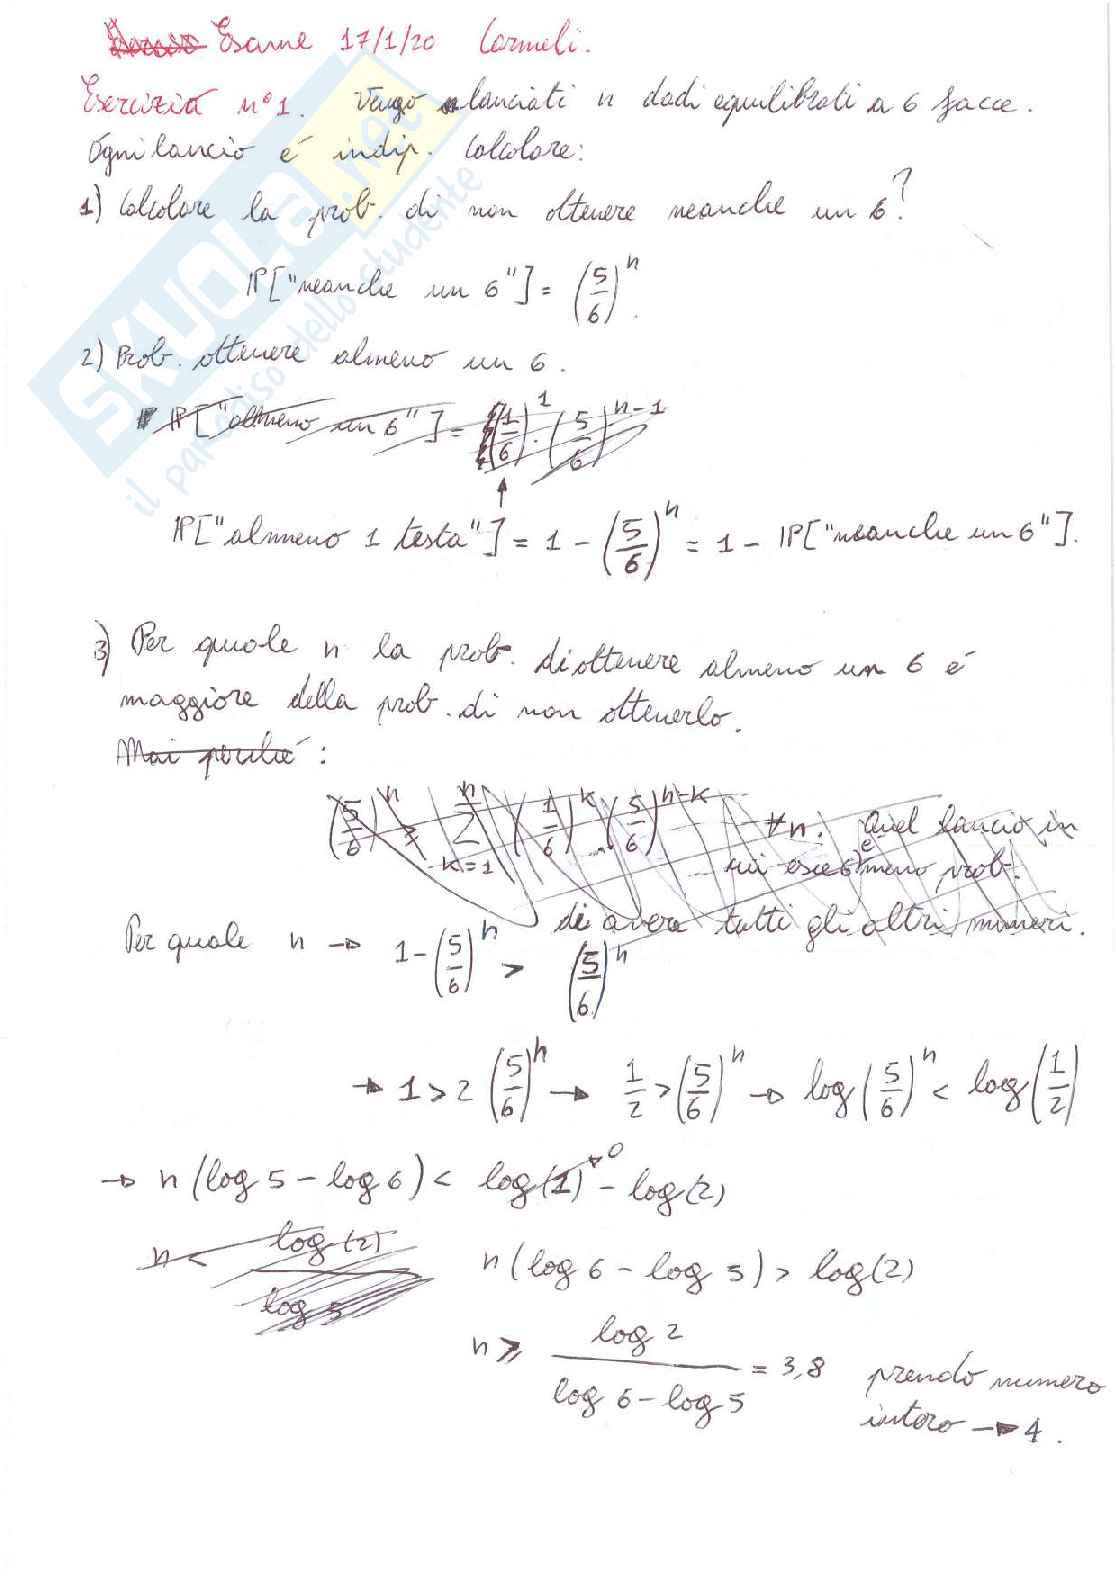 Esame 17/1/20 Carmeli.
Esercizio n°1. Vengo lanciati n dadi equilibrati a 6 facce.
Ogni lancio é indip. Calcolare:
1) Calcolare la prob. di non ottenere neanche un 6?
IP["neanche un 6"] = (5/6)^n.
2) Prob. ottenere almeno un 6.
IP["almeno un 6"] = (1/6)^1 · (5/6)^n-1
IP["almeno 1 testa"] = 1 - (5/6)^n = 1 - IP["neanche un 6"].
3) Per quale n la prob. di ottenere almeno un 6 é
maggiore della prob. di non ottenerlo.
Mai perché :
(5/6)^n > Σ_{k=1}^n (1/6)^k (5/6)^n-k ∀n. Quel lancio in
cui esce 6 é meno prob.
di avere tutti gli altri numeri.
Per quale n → 1-(5/6)^n > (5/6)^n
→ 1 > 2 (5/6)^n → 1/2 > (5/6)^n → log(5/6)^n < log(1/2)
→ n(log 5 - log 6) < log(1)→0 - log(2)
n < log(2)/log 5
n(log 6 - log 5) > log(2)
n ≥ log 2/(log 6 - log 5) = 3,8 prendo numero
intero → 4.
SKUOLA.net
il paradiso dello studente